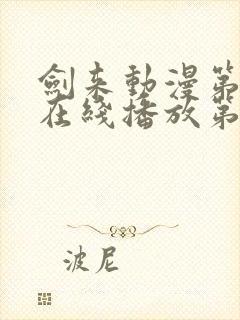 劍来動漫第
在綫播放第
波尼